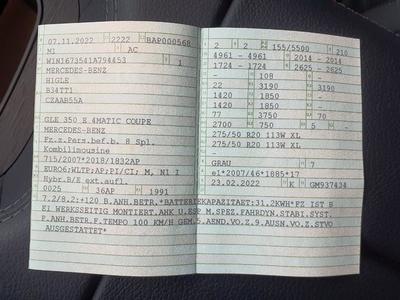 07.11.2022 2222 BAP000568
M1 AC
W1N1673541A794453 1
MERCEDES-BENZ
H1GLE
B34TT1
CZAAB55A
GLE 350 E 4MATIC COUPE
MERCEDES-BENZ
Fz.z.Pers.bef.b. 8 Spl.
Kombilimousine
715/2007*2018/1832AP
EURO6;WLTP;AP;PI/CI; M, N1 I
Hybr.B/E ext.aufl.
0025 36AP 1991
2 2 155/5500 210
4961 - 4961 2014 - 2014
1724 - 1724 2625 - 2625
- 108 -
22 3190 3190
1420 1850 -
1420 1850 -
77 3750 70
2700 750 5 -
275/50 R20 113W XL
275/50 R20 113W XL
GRAU 7
e1*2007/46*1885*17
23.02.2022 K GM937434
7.2/8.2:+120 B.ANH.BETR.*BATTERIEKAPAZITAET:31.2KWH*FZ IST B
EI WERKSSEITIG MONTIERT.AHK U.ESP M.SPEZ.FAHRDYN.STABI.SYST.
F.ANH.BETR.F.TEMPO 100 KM/H GEM.5.AEND.VO.Z.9.AUSN.VO.Z.STVO
AUSGESTATTET*